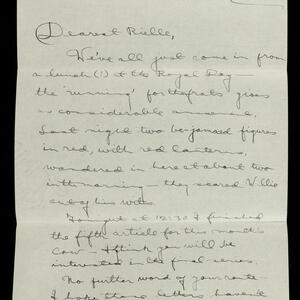 Dearest Rielle,
We've all just come in from
a lunch (!) at the Royal Day —
the 'running' for the frats gives
us considerable amusement.
Last night two be-jamaed figures
in red, with red lanterns,
wandered in here at about two
in the morning — they scared Ollie
out of his wits.
Tonight at 12:30 I finished
the fifth article for this month's
Cow — I think you will be
interested in the final series.
No further word of your route
I hope these letters haven't